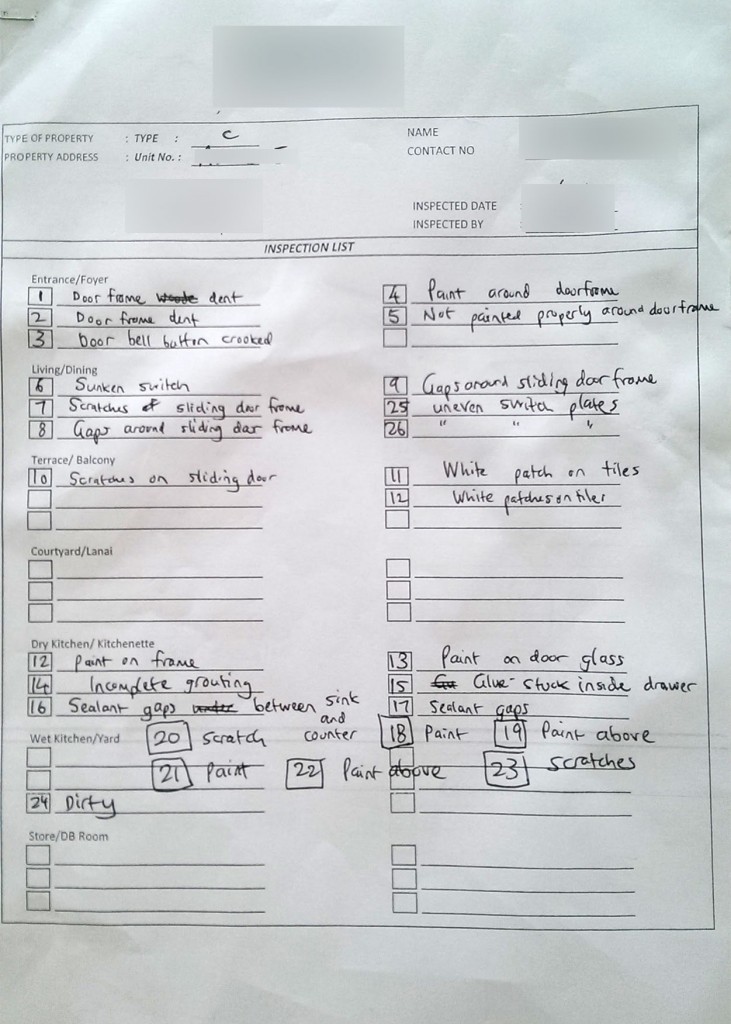 TYPE OF PROPERTY : TYPE : C
NAME
PROPERTY ADDRESS : Unit No. :
CONTACT NO
INSPECTED DATE :
INSPECTED BY
INSPECTION LIST
Entrance/Foyer
1 Door frame dent
4 Paint around doorframe
2 Door frame dent
5 Not painted properly around doorframe
3 Door bell button crooked
Living/Dining
6 Sunken switch
9 Gaps around sliding door frame
7 Scratches of sliding door frame
25 uneven switch plates
8 Gaps around sliding door frame
26 " " "
Terrace/ Balcony
10 Scratches on sliding door
11 White patch on tiles
12 White patches on tiles
Courtyard/Lanai
Dry Kitchen/ Kitchenette
12 Paint on frame
13 Paint on door glass
14 Incomplete grouting
15 Glue stuck inside drawer
16 Sealant gaps between sink and counter
17 Sealant gaps
Wet Kitchen/Yard
20 Scratch
18 Paint
19 Paint above
21 Paint
22 Paint above
23 scratches
24 Dirty
Store/DB Room